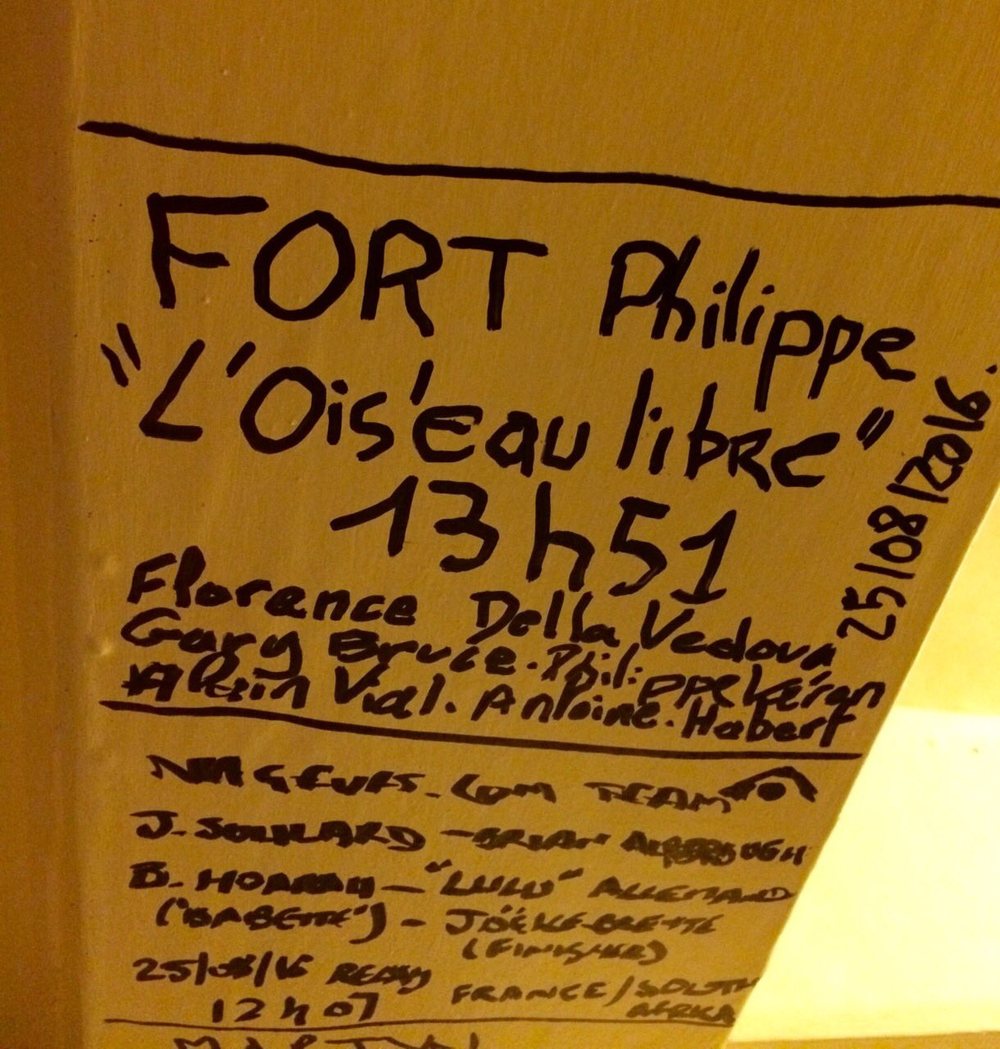 FORT Philippe
"L'Ois'eau libre"
13h51
25/08/2016.
Florence Della Vedova
Gary Bruce. Philippe Kéran
Alain Vial. Antoine. Habert
NAGEURS.COM TEAM
J. SOULLARD - BRIAN
B. HOARAU - "LULU" ALLEMAND
("BABETTE") - JOËLLE BRETTE
(FINISHER)
25/08/16 RELAY FRANCE/SOUTH
12h07 AFRICA